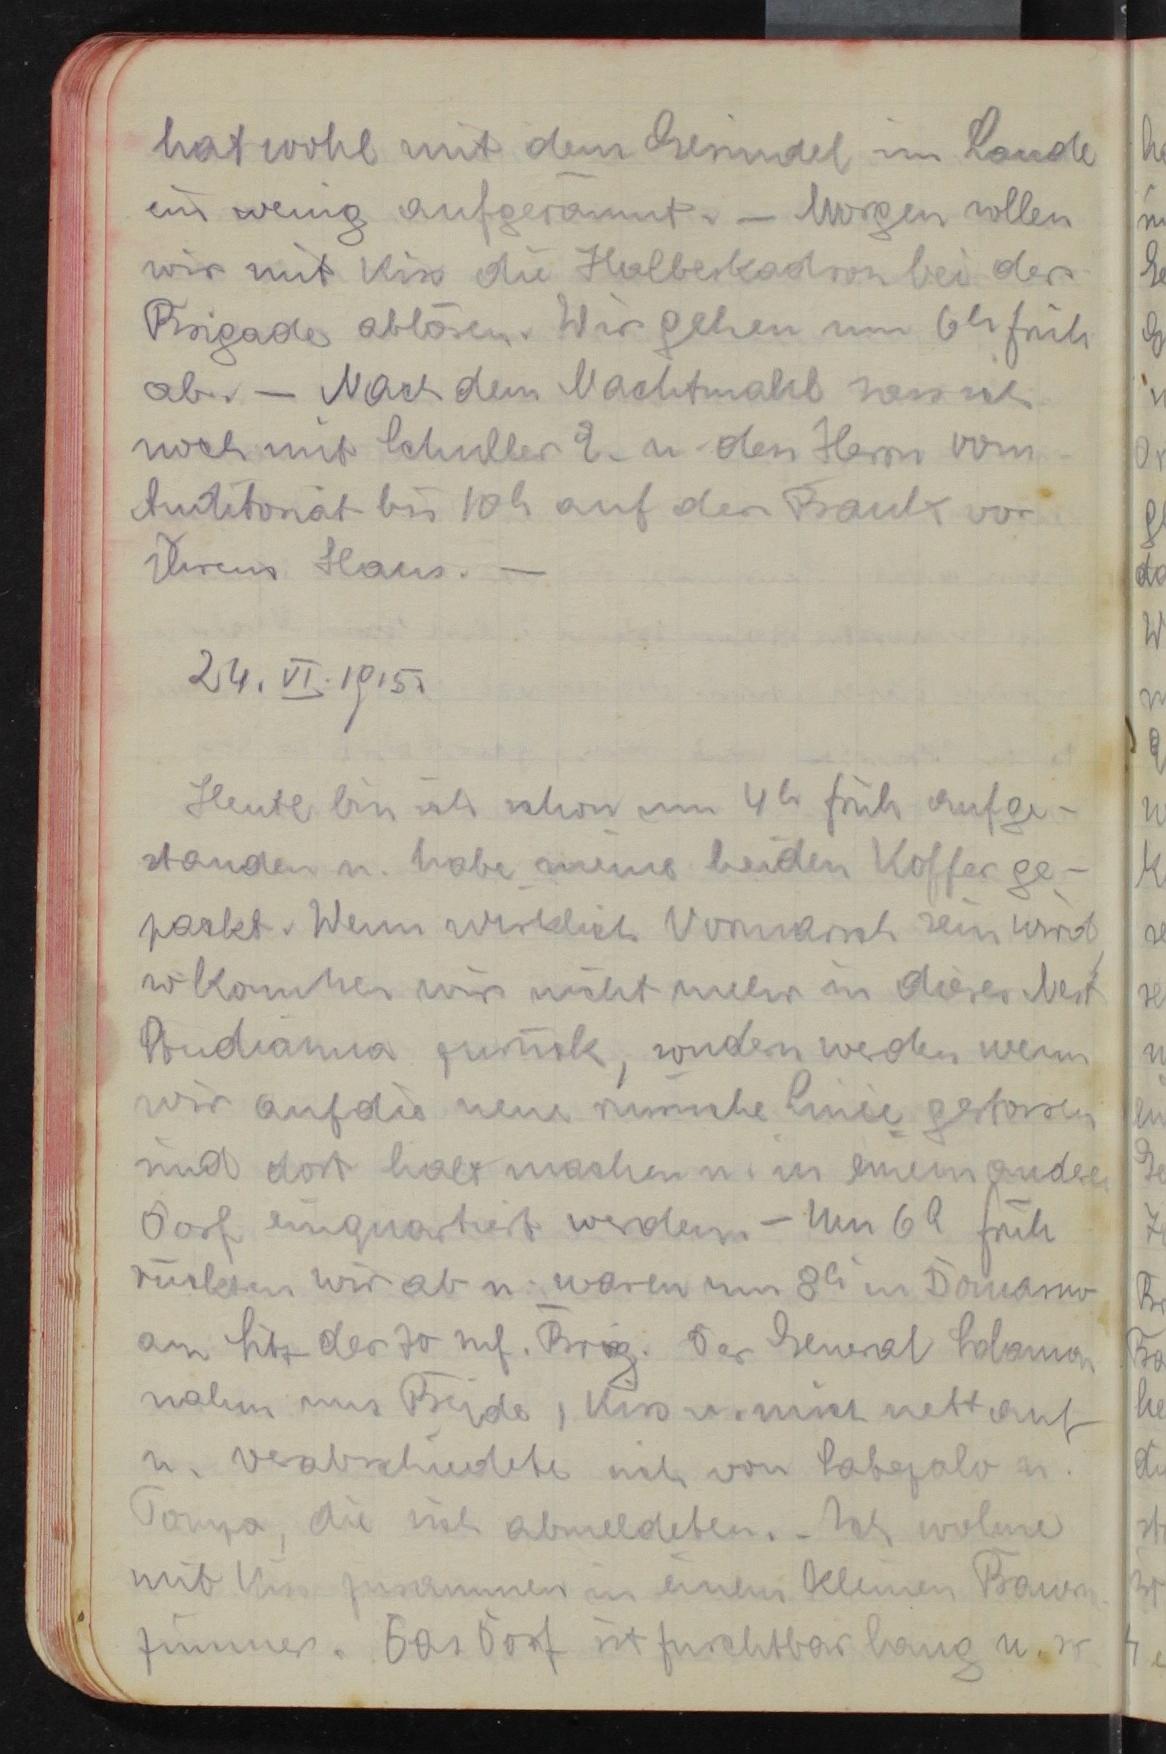 hat wohl mit dem Gesindel im Lande
ein wenig aufgeräumt. — Morgen sollen
wir mit Kiss die Halbeskadron bei der
Brigade ablösen. Wir gehen um 6h früh
ab. — Nach dem Nachtmahl sass ich
noch mit Schuller E. u. den Herrn vom
Auditoriat bis 10h auf der Bank vor
ihrem Haus. —
24. VI. 1915.
Heute bin ich schon um 4h früh aufge-
standen u. habe meine beiden Koffer ge-
packt. Wenn wirklich Vormarsch sein wird,
so kommen wir nicht mehr in dieses Nest
Studianna zurück, sondern werden wenn
wir auf die neue russische Linie gestossen
sind dort halt machen u. in einem andere
Dorf einquartiert werden. — Um 6h früh
rückten wir ab u. waren um 8h in
am Sitz der 70 Inf. Brig. Der General
nahm uns Beide, Kiss u. mich nett auf
u. verabschiedete sich von u.
die sich abmeldeten. – Ich wohne
mit Kiss zusammen in einem kleinen Bauern-
zimmer. Das Dorf ist furchtbar lang u. so